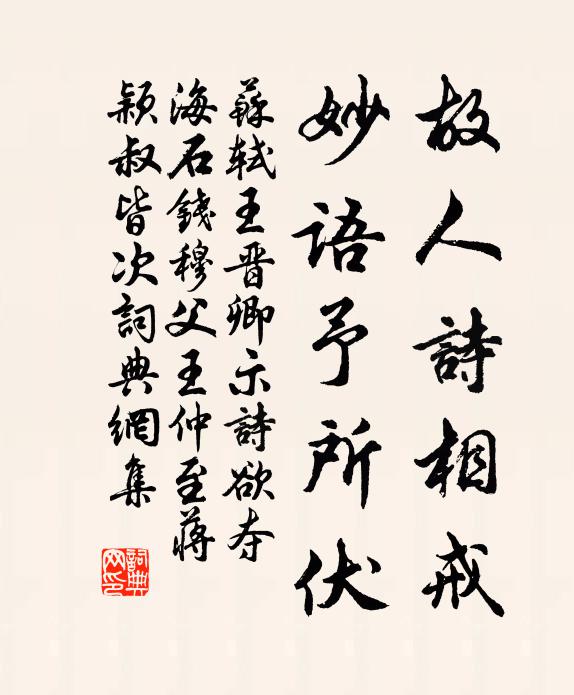 故人詩相戒
妙語予所伏
蘇軾王晋卿示詩欲夺
海石錢穆父王仲至蔣
穎叔皆次詞典網集
詞典網印